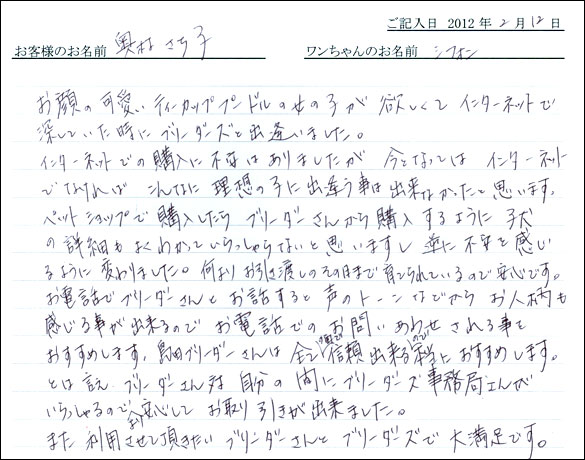 ご記入日 2012 年 2 月 12 日
お客様のお名前 奥村 さち子 ワンちゃんのお名前 シフォン
お顔の可愛い ティーカッププードルの女の子が 欲しくて インターネットで
探していた時に ブリーダーズと出逢いました。
インターネットでの購入に不安はありましたが 今となっては インターネット
でなければ こんなに 理想の子に出逢う事は出来なかったと思います。
ペットショップで購入したら ブリーダーさんから購入するように 子犬
の詳細もよくわかっていらっしゃらないと思いますし 逆に不安を感じ
るように変わりました。何よりお引き渡しのその日まで育てられているので安心です。
お電話でブリーダーさんと お話すると 声のトーンなどから お人柄も
感じる事が出来るので お電話でのお問い あわせされる事を
おすすめします。島田ブリーダーさんは 全て信頼出来る におすすめします。
とは言え ブリーダーさん対 自分の 間にブリーダーズ事務局さんが
いらっしゃるので安心して お取り引きが出来ました。
また 利用させて頂きたい ブリーダーさんと ブリーダーズで 大満足です。